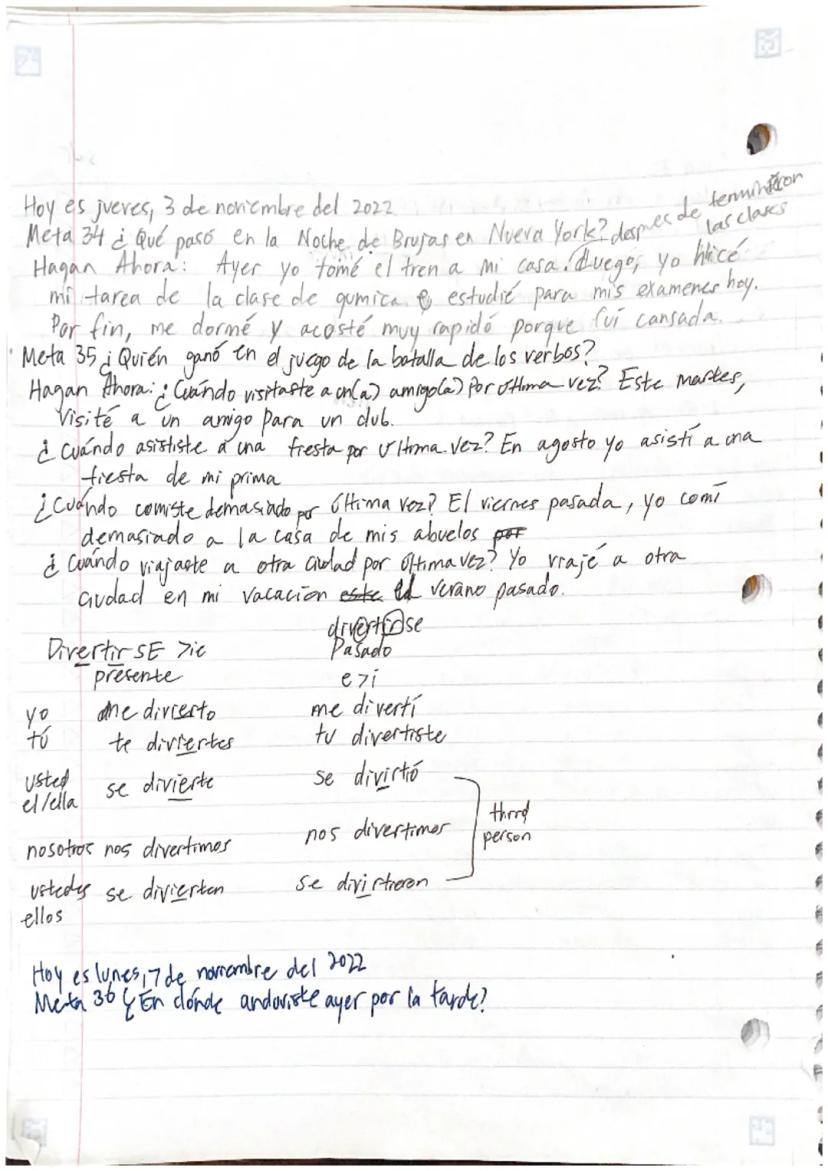 Hoy es jueves, 3 de noviembre del 2022
Meta 34 ¿Qué pasó en la Noche de Brujas en Nueva York? despues de terminaron las clases
Hagan Ahora: Ayer yo tomé el tren a mi casa. Luego, yo hicé
mi tarea de la clase de qumica e estudié para mis examenes hoy.
Por fin, me dormé y acosté muy rapidó porque fuí cansada.
Meta 35 ¿Quién ganó en el juego de la batalla de los verbos?
Hagan Ahora: ¿Cuándo visitaste a un(a) amigo(a) por última vez? Este martes,
visité a un amigo para un club.
¿Cuándo asististe a una fiesta por última vez? En agosto yo asistí a una
fiesta de mi prima
¿Cuándo comiste demasiado por última vez? El viernes pasada, yo comí
demasiado a la casa de mis abuelos por
¿Cuándo viajaste a otra ciudad por última vez? Yo viajé a otra
ciudad en mi vacacion este el verano pasado.
divertirse
Divertir SE >ie Pasado
presente e>i
yo me divierto me divertí
tú te diviertes tu divertiste
usted el/ella se divierte se divirtió
third person
nosotros nos divertimos nos divertimos
ustedes ellos se divierten se divirtieron
Hoy es lunes, 7 de noviembre del 2022
Meta 36 ¿En dónde anduviste ayer por la tarde?